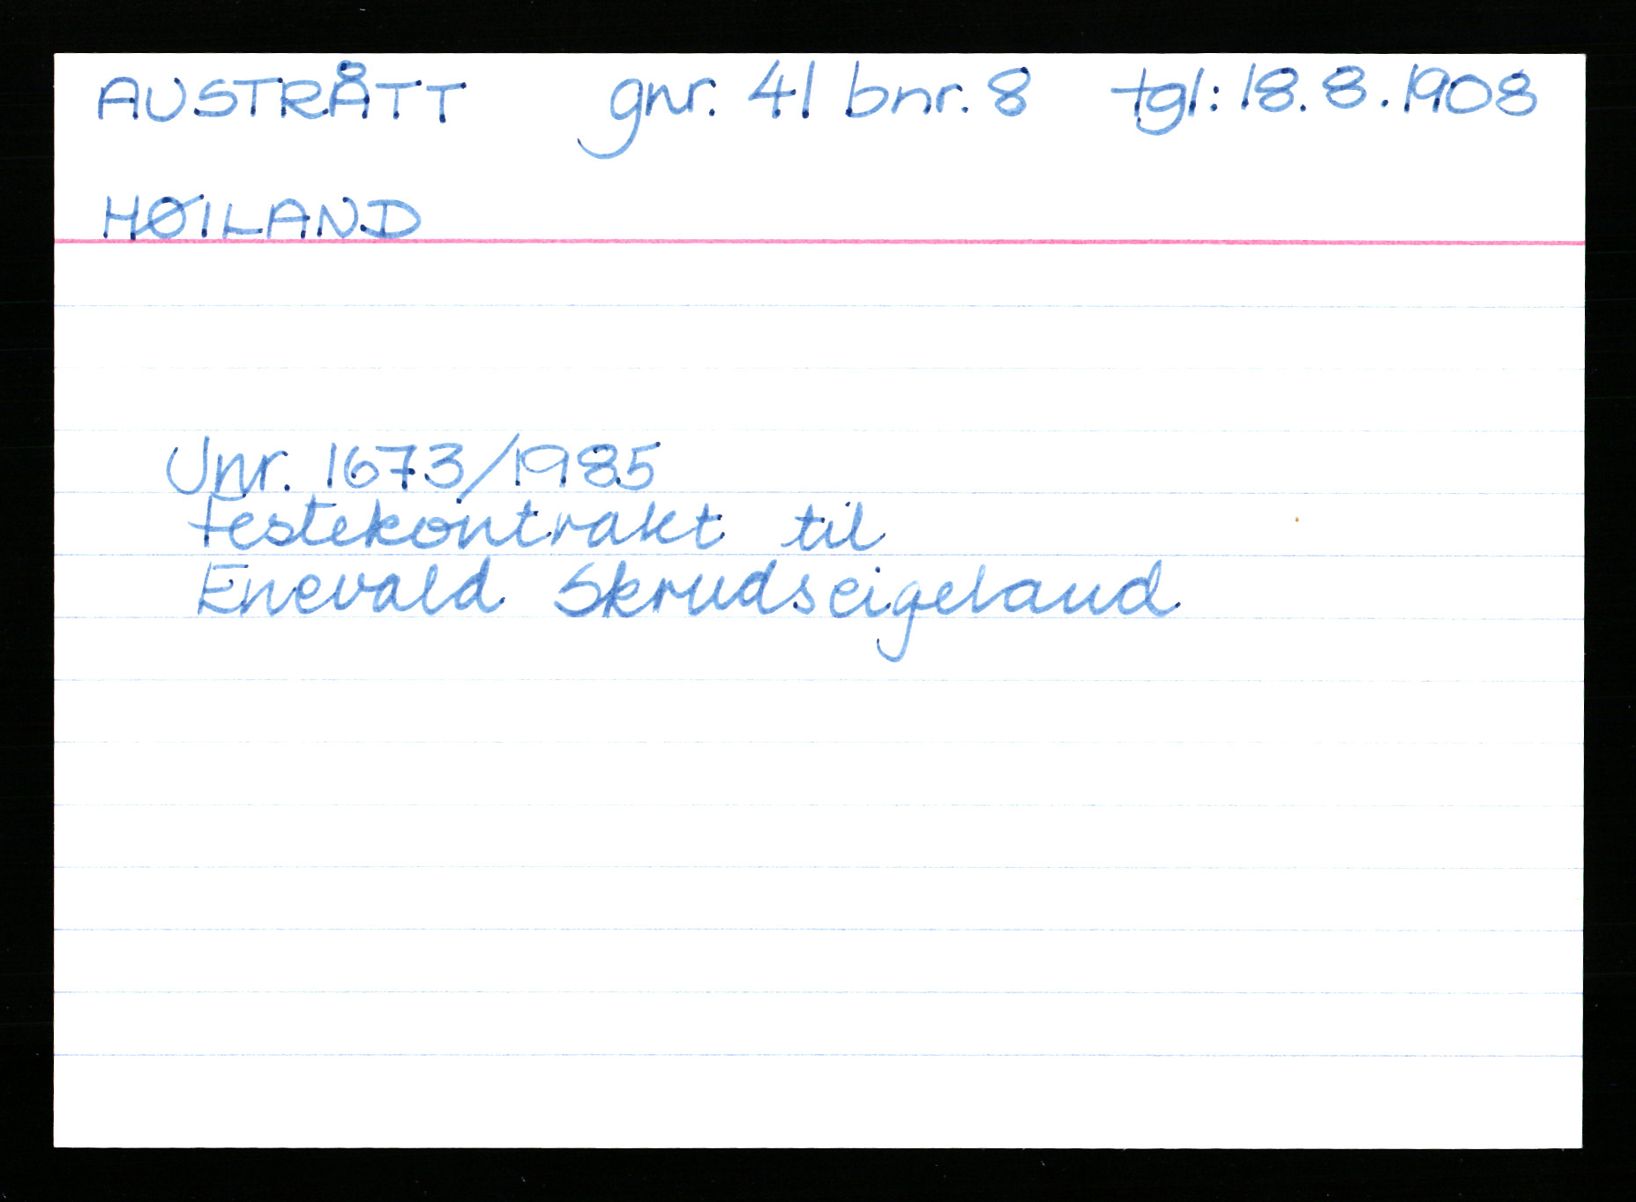 AUSTRÅTT gnr. 41 bnr. 8 tgl: 18.8.1908
HØILAND
Unr. 1673/1985
Festekontrakt til
Enevald Skrudseigeland